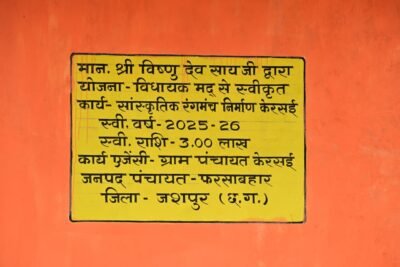 मान. श्री विष्णु देव साय जी द्वारा
योजना - विधायक मद् से स्वीकृत
कार्य - सांस्कृतिक रंगमंच निर्माण केरसई
स्वी. वर्ष - 2025-26
स्वी. राशि - 3.00 लाख
कार्य एजेंसी - ग्राम पंचायत केरसई
जनपद् पंचायत - फरसाबहार
जिला - जशपुर (छ.ग.)